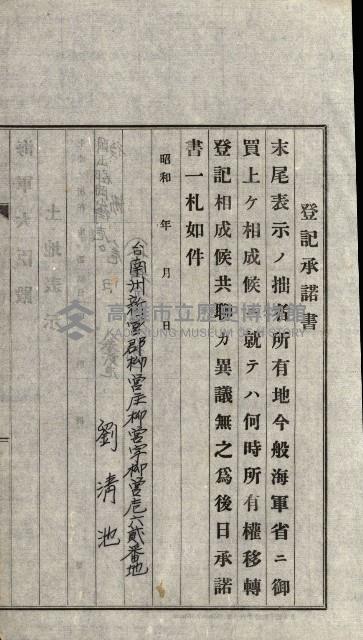 登記承諾書
末尾表示ノ拙者所有地今般海軍省ニ御
買上ケ相成候ニ就テハ何時所有權移轉
登記相成候共聊カ異議無之爲後日承諾
書一札如件
昭和 年 月 日
台南州新營郡柳營庄柳營字柳營六貳番地
劉清池
土地表示
海軍大臣殿
高雄市立歷史博物館
KAOHSIUNG MUSEUM OF HISTORY